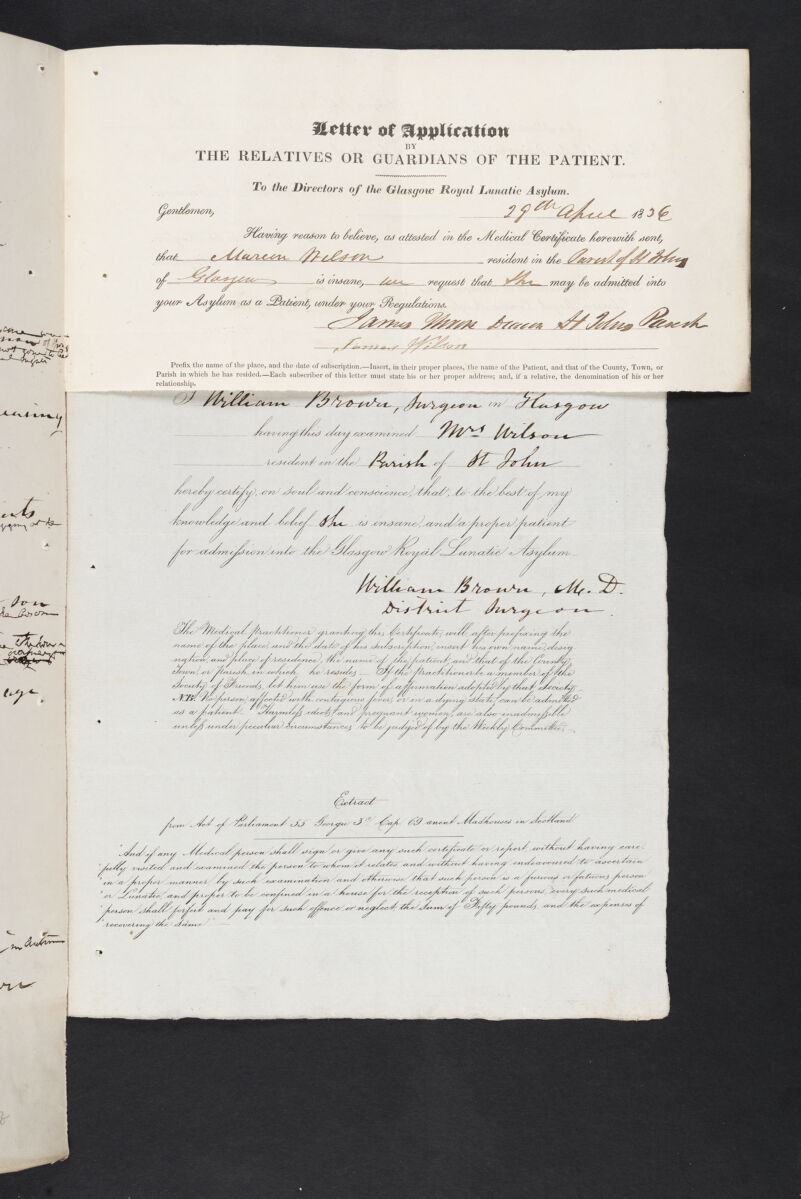 Letter of Application
BY
THE RELATIVES OR GUARDIANS OF THE PATIENT.
To the Directors of the Glasgow Royal Lunatic Asylum.
Gentlemen,
29th April 1836
Having reason to believe, as attested in the Medical Certificate herewith sent,
that Marion Wilson resident in the Parish of St Johns
of Glasgow is insane, we request that She may be admitted into
your Asylum as a Patient, under your Regulations.
James Deacon St Johns Parish
James Wilson
Prefix the name of the place, and the date of subscription.—Insert, in their proper places, the name of the Patient, and that of the County, Town, or
Parish in which he has resided.—Each subscriber of this letter must state his or her proper address; and, if a relative, the denomination of his or her
relationship.
I William Brown, Surgeon in Glasgow
having this day examined Mrs Wilson
resident in the Parish of St John
hereby certify, on soul and conscience, that, to the best of my
knowledge and belief She is insane, and a proper patient
for admission into the Glasgow Royal Lunatic Asylum
William Brown, M.D.
District Surgeon.
The Medical practitioner granting this Certificate, will, after prefixing the
name of the place, and the date of his subscription, insert his own name, desig
nation, and place of residence, the name of the patient, and that of the County,
Town, or parish in which he resides. If the practitioner be a member of the
Society of Friends, let him use the form of affirmation adopted by that Society.
N.B. No person affected with contagious fever, or in a dying state, can be admitted
as a patient. Harmless idiots and pregnant women, are also inadmissible
unless under peculiar circumstances, to be judged of by the Weekly Committee.
Extract
from Act of Parliament 55 George 3d Cap. 69 anent Madhouses in Scotland
"And if any Medical person shall sign or give any such certificate or report without having care-
"fully visited and examined the person to whom it relates, and without having endeavoured to ascertain
"in a proper manner by such examination and otherwise that such person is a furious or fatuous person
"or Lunatic, and proper to be confined in a house for the reception of such persons, every such medical
"person shall forfeit and pay for such offence or neglect, the sum of Fifty pounds, and the expenses of
"recovering the same"